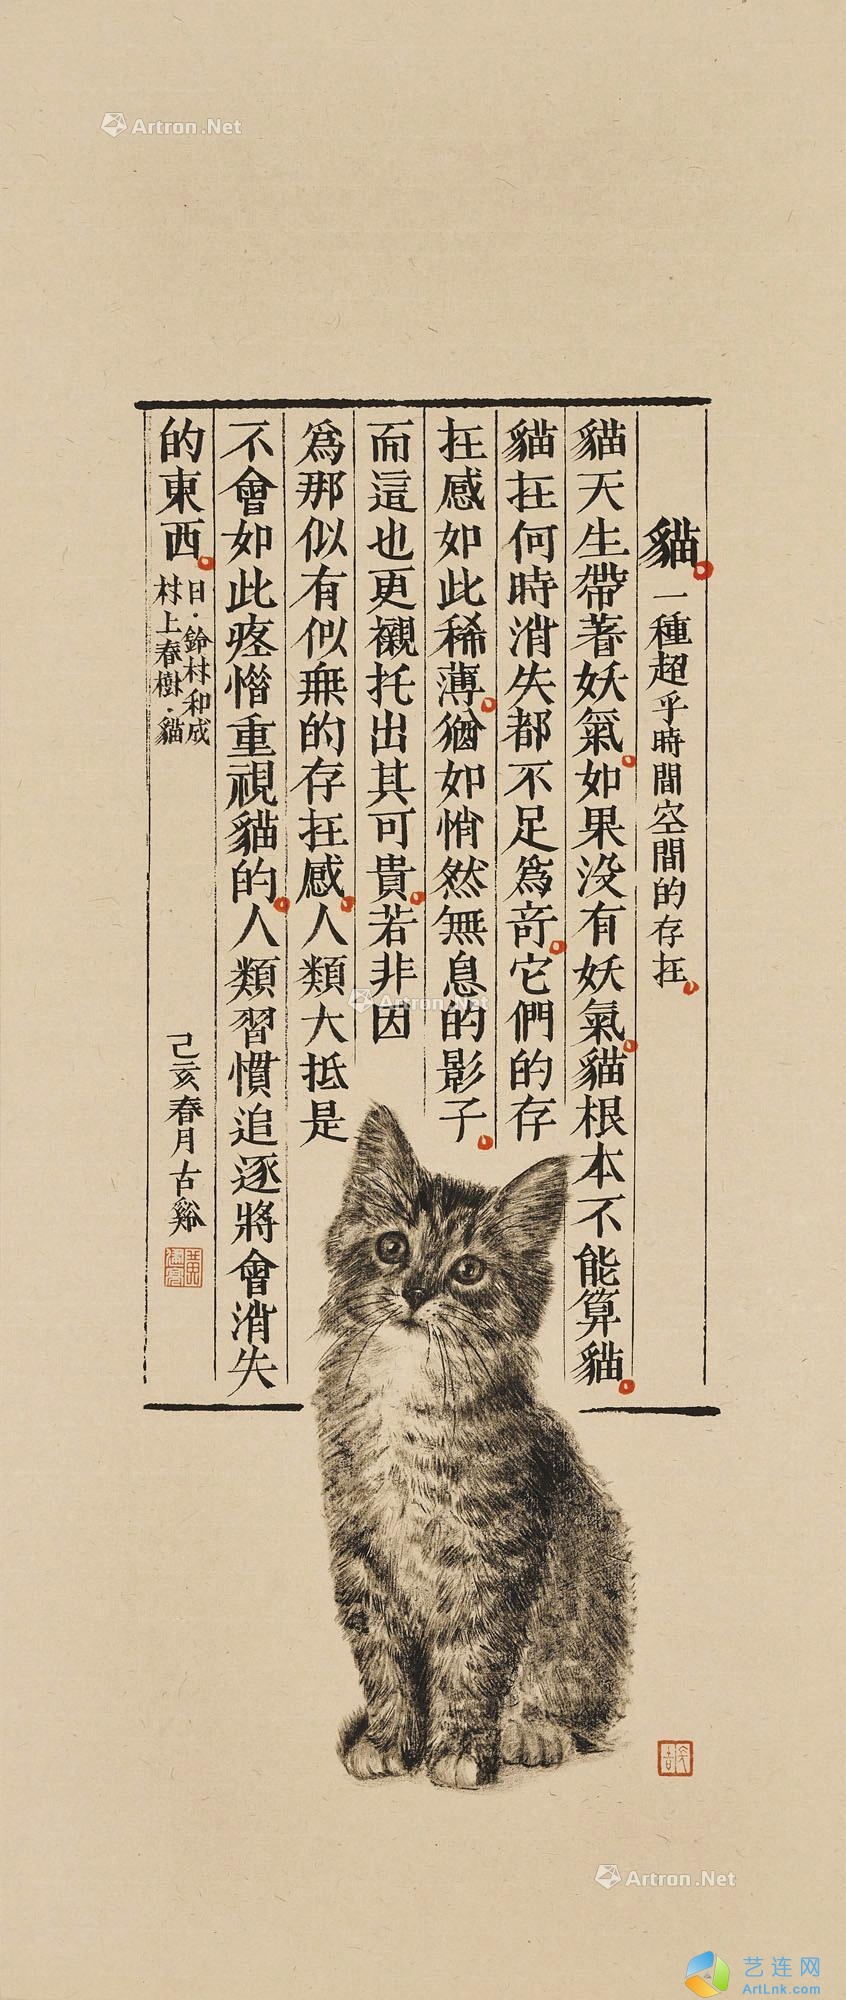 貓。一種超乎時間空間的存在。
貓天生帶著妖氣。如果没有妖氣。貓根本不能算貓。
貓在何時消失都不足爲竒。它們的存
在感如此稀薄、猶如悄然無息的影子。
而這也更襯托出其可貴。若非因
爲那似有似無的存在感。人類大抵是
不會如此疼惜重視貓的。人類習慣追逐將會消失
的東西。
日·鈴村和成
村上春樹·貓
己亥春月古谿
Artron.Net
Artron.Net
Artron.Net
艺连网
ArtLnk.com